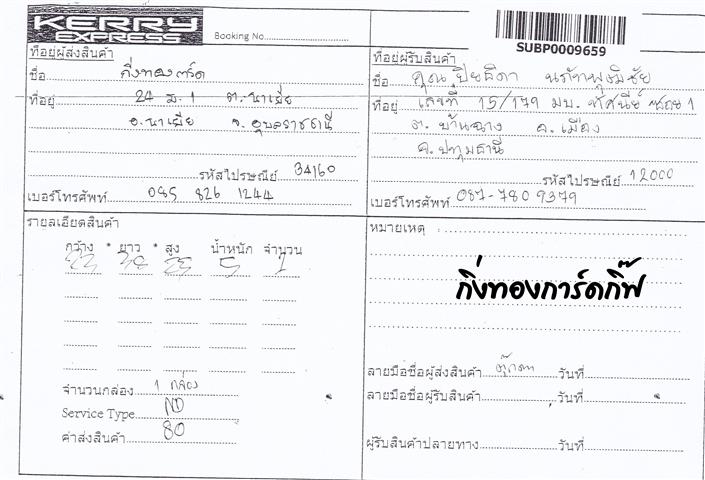 KERRY
EXPRESS
Booking No.
SUBP0009659
ที่อยู่ผู้ส่งสินค้า
ชื่อ กิ่งทองการ์ด
ที่อยู่ 24 ม.1 ต.นาเยีย
อ.นาเยีย จ.อุบลราชธานี
รหัสไปรษณีย์ 34160
เบอร์โทรศัพท์ 085 826 1244
ที่อยู่ผู้รับสินค้า
ชื่อ คุณปิยธิดา
ที่อยู่ เลขที่ 15/179 มบ. ทัศนีย์ ซอย 1
ต. บ้านฉาง อ.เมือง
จ.ปทุมธานี
รหัสไปรษณีย์ 12000
เบอร์โทรศัพท์ 087-780 9379
รายละเอียดสินค้า
กว้าง * ยาว * สูง น้ำหนัก จำนวน
5 1
จำนวนกล่อง 1 กล่อง
Service Type ND
ค่าส่งสินค้า 80
หมายเหตุ :
กิ่งทองการ์ดกิ๊ฟ
ลายมือชื่อผู้ส่งสินค้า ตุ๊กตา วันที่
ลายมือชื่อผู้รับสินค้า วันที่
ผู้รับสินค้าปลายทาง วันที่